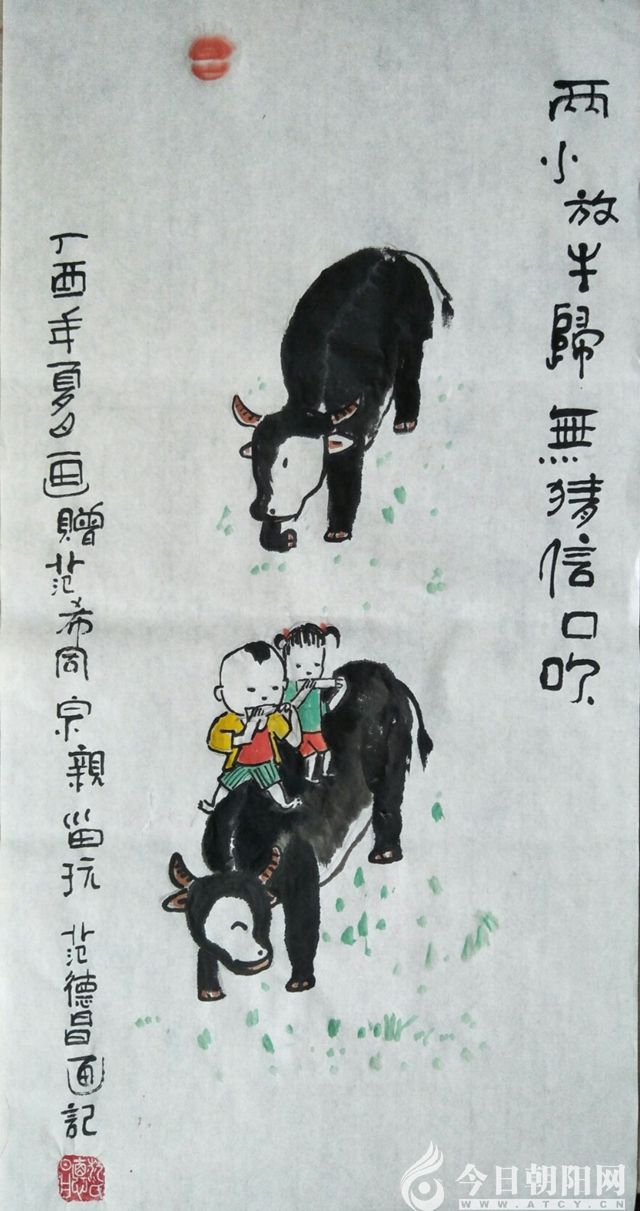 两小放牛歸無猜信口吹
丁酉年夏日画贈范希同宗親留玩 范德昌画記
今日朝阳网
WWW.ATCY.CN